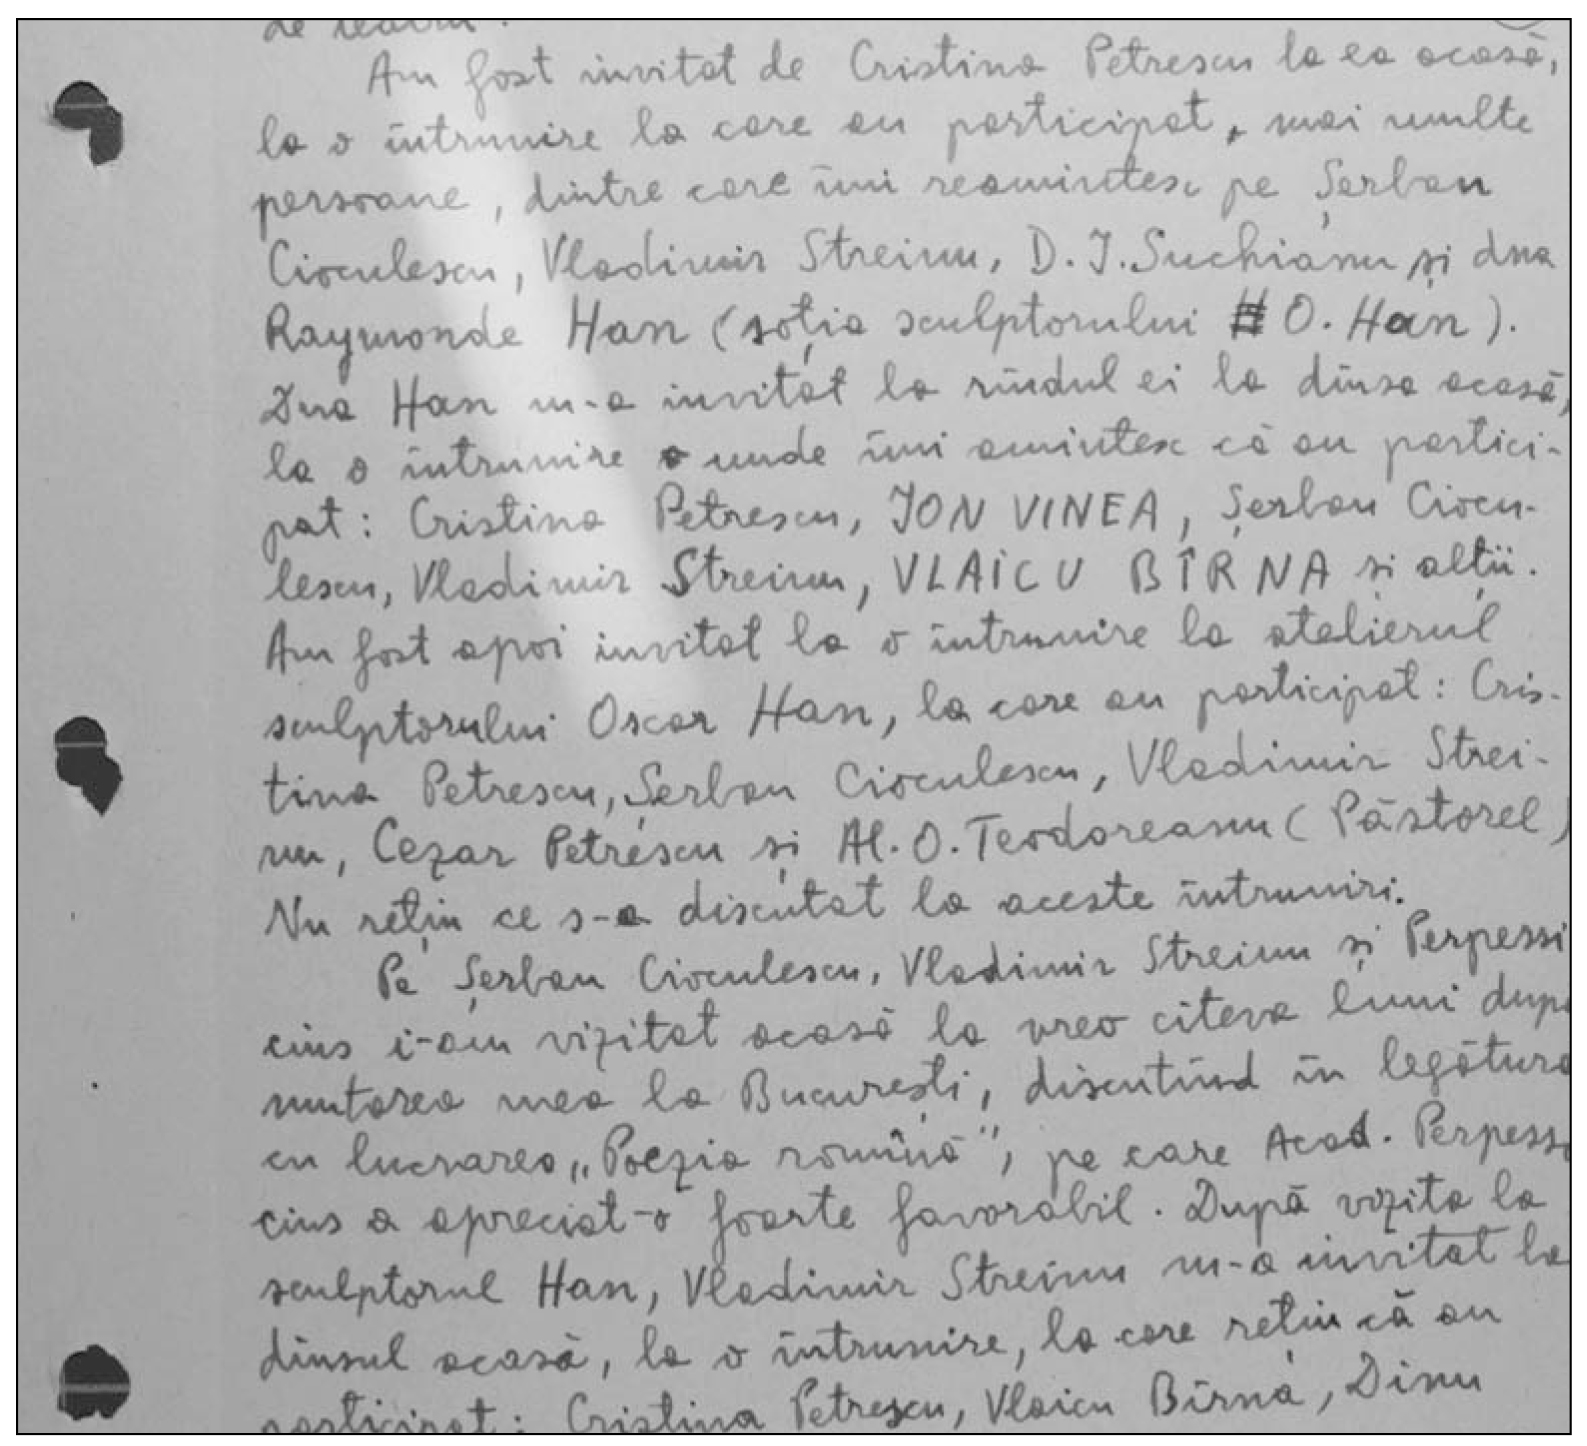 de teatru.
Am fost invitat de Cristina Petrescu la ea acasă,
la o întrunire la care au participat, mai multe
persoane, dintre care îmi reamintesc pe Șerban
Cioculescu, Vladimir Streinu, D.I. Suchianu și dna
Raymonde Han (soția sculptorului O. Han).
Dna Han m-a invitat la rîndul ei la dînsa acasă,
la o întrunire unde îmi amintesc că au partici-
pat: Cristina Petrescu, ION VINEA, Șerban Ciocu-
lescu, Vladimir Streinu, VLAICU BÎRNA și alții.
Am fost apoi invitat la o întrunire la atelierul
sculptorului Oscar Han, la care au participat: Cris-
tina Petrescu, Șerban Cioculescu, Vladimir Strei-
nu, Cezar Petrescu și Al. O. Teodoreanu (Păstorel)
Nu rețin ce s-a discutat la aceste întruniri.
Pe Șerban Cioculescu, Vladimir Streinu și Perpessi
cius i-am vizitat acasă la vreo cîteva luni după
mutarea mea la București, discutînd în legătura
cu lucrarea „Poezia română", pe care Acad. Perpess
cius a apreciat-o foarte favorabil. După vizita la
sculptorul Han, Vladimir Streinu m-a invitat la
dînsul acasă, la o întrunire, la care rețin că au
participat: Cristina Petrescu, Vlaicu Bîrna, Dinu